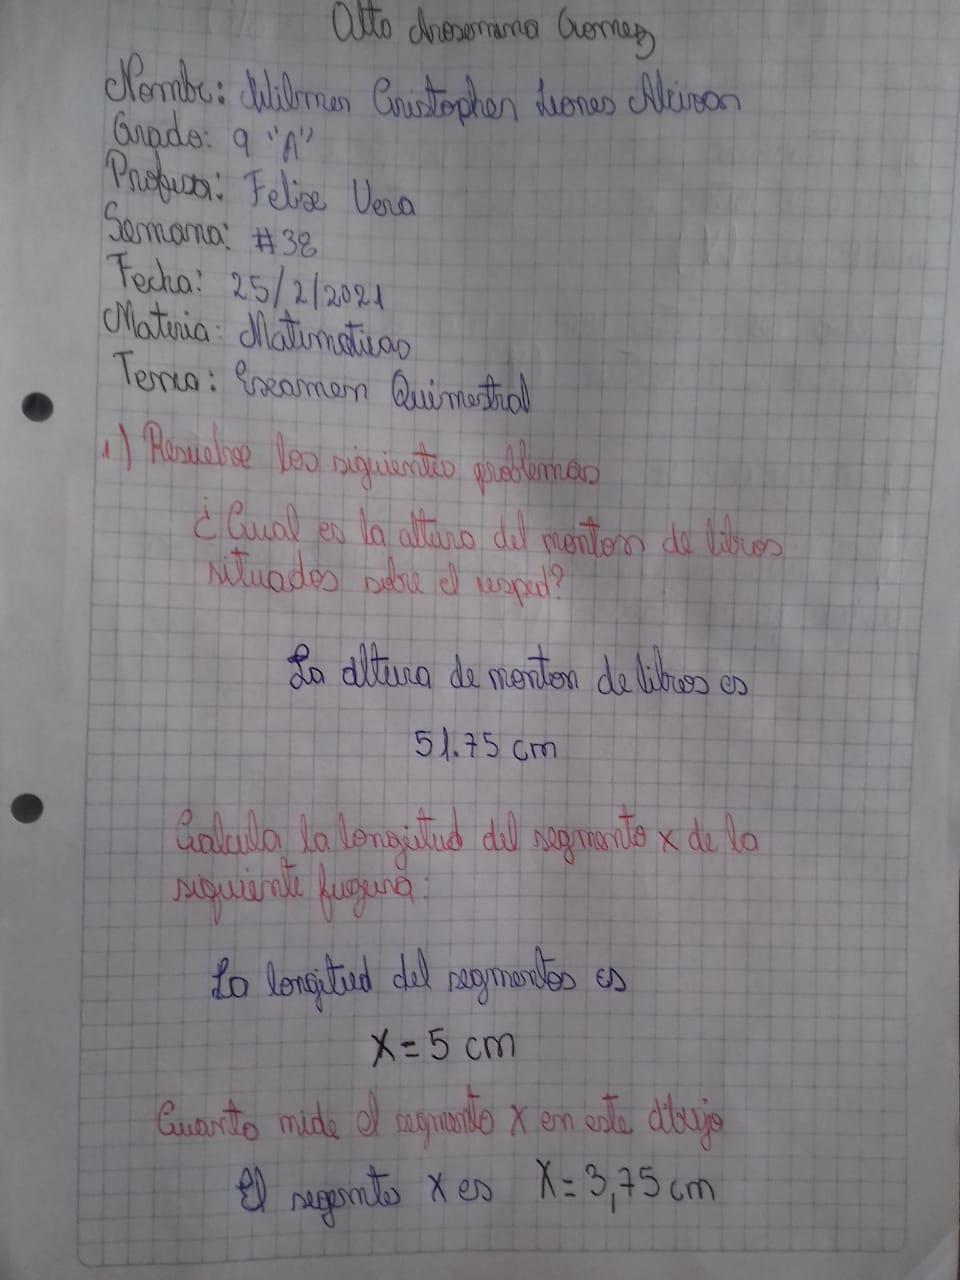 Otto Arosemena Gomez
Nombre: Wilmer Cristopher
Grado: 9 "A"
Profesor: Felix Vera
Semana: #38
Fecha: 25/2/2021
Materia: Matematicas
Tema: Examen Quimestral
1) Resuelve los siguientes problemas
¿Cual es la altura del monton de libros
situados sobre el cesped?
La altura de monton de libros es
51.75 cm
Calcula la longitud del segmento x de la
siguiente fugura:
La longitud del segmentos es
X=5 cm
Cuanto mide el segmento x en este dibujo
El segemto x es X=3,75 cm